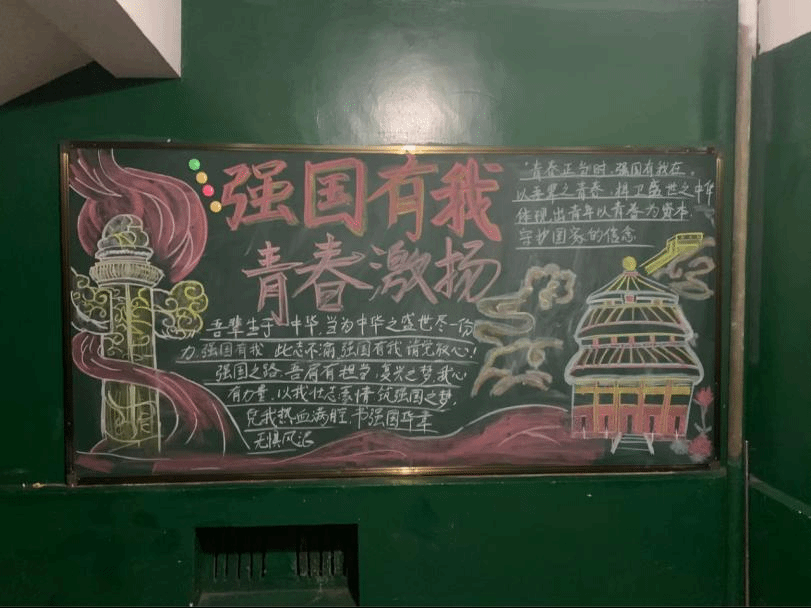 强国有我
青春激扬
"青春正当时,强国有我在。
以吾辈之青春,捍卫盛世之中华
体现出青年以青春为资本,
守护国家的信念
吾辈生于中华,当为中华之盛世尽一份
力,强国有我 此志不渝,强国有我 请党放心!
强国之路,吾肩有担当,复兴之梦,我心
有力量,以我壮志豪情 筑强国之梦,
凭我热血满腔,书强国华章
无惧风